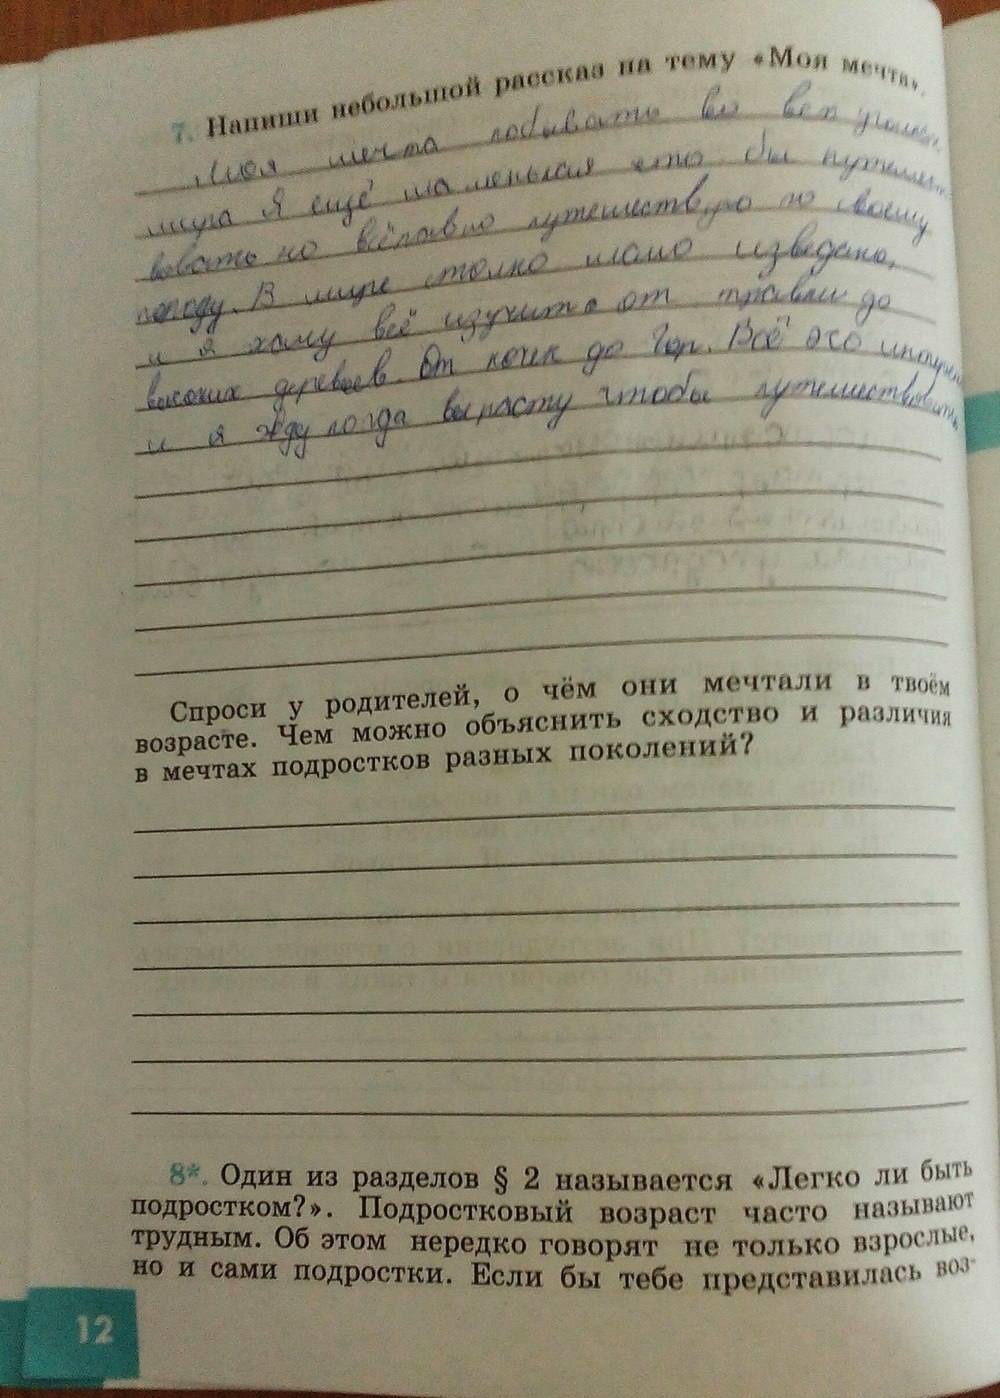 7. Напиши небольшой рассказ на тему «Моя мечта».
Моя мечта побывать во всех уголках
мира Я ещё маленькая что бы путешест-
вовать но всёравно путешествую по своему
городу. В мире столко мало изведано,
и я хочу всё изучить от травки до
высоких деревьев. От кочек до Гор. Всё это
и я жду когда вырасту чтобы путешествовать
Спроси у родителей, о чём они мечтали в твоём
возрасте. Чем можно объяснить сходство и различия
в мечтах подростков разных поколений?
8*. Один из разделов § 2 называется «Легко ли быть
подростком?». Подростковый возраст часто называют
трудным. Об этом нередко говорят не только взрослые,
но и сами подростки. Если бы тебе представилась воз-
12